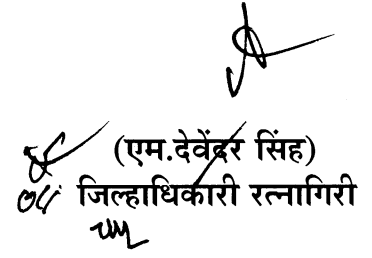 (एम.देवेंदर सिंह)
जिल्हाधिकारी रत्नागिरी